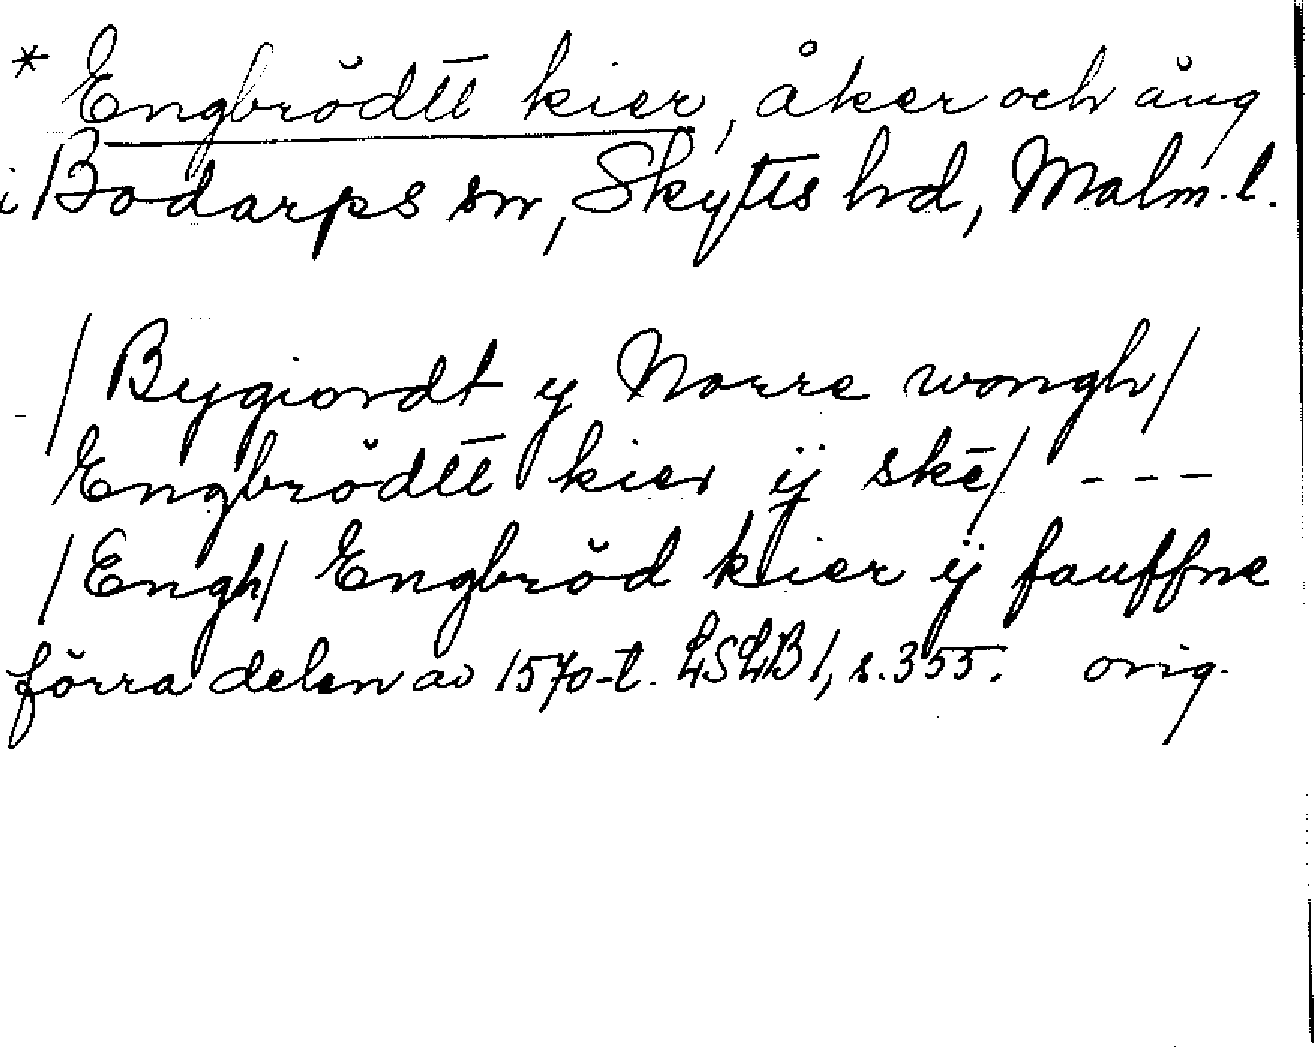 * Engbrŏdtt kier, åker och äng
i Bodarps sn, Skytts hd, Malm. l.
/ Bygiordt y Norre wongh/
Engbrŏdtt kier ÿ skē/ - - -
/Engh/ Engbrŏd kier ÿ fauffne
förra delen av 1570-t. LSLB 1, s. 355. orig.